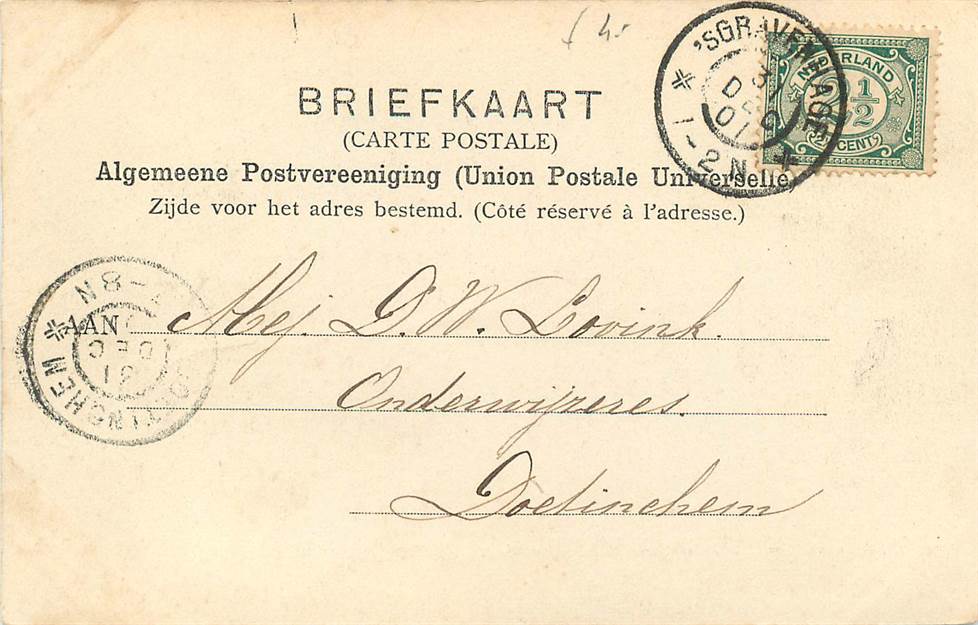 ƒ 4.-
'SGRAVENHAGE
31
DEC
01
1-2N
NEDERLAND
2 1/2
CENT
BRIEFKAART
(CARTE POSTALE)
Algemeene Postvereeniging (Union Postale Universelle)
Zijde voor het adres bestemd. (Côté réservé à l'adresse.)
7-8N
DEC
31
DOETINCHEM
AAN Mej. D. W. Lovink.
Onderwijzeres.
Doetinchem